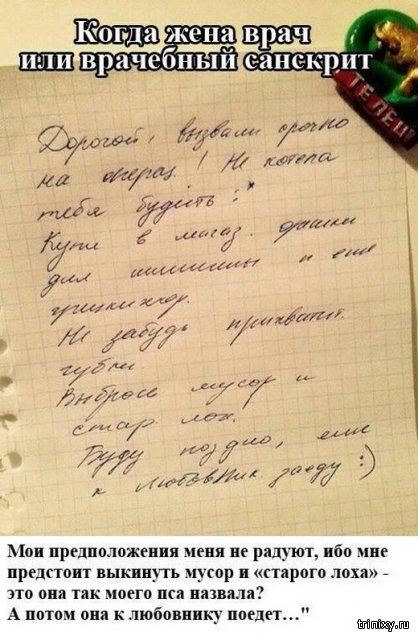 Когда жена врач
или врачебный санскрит
ТЕЛЕЦ
Дорогой, вызвали срочно
на операц.! Не хотела
тебя будить :*
Купи в магаз.
для и еще
Не забудь прихватит.
губки.
Выброси мусор и
стар. лох.
Буду поздно, еще
к любовник заеду :)
Мои предположения меня не радуют, ибо мне
предстоит выкинуть мусор и «старого лоха» -
это она так моего пса назвала?
А потом она к любовнику поедет…"
trinixy.ru